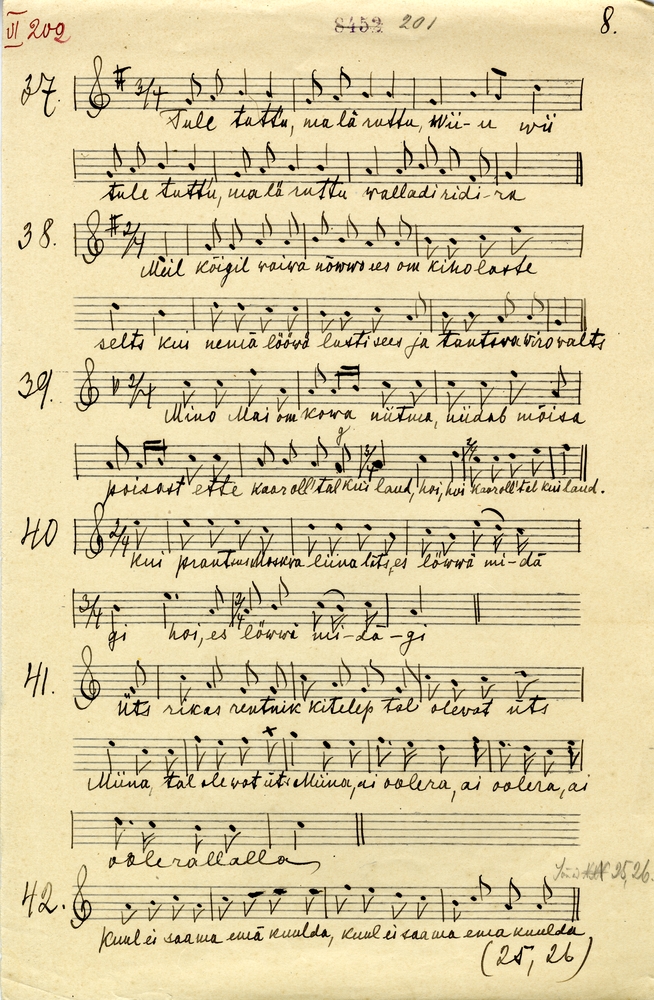 VI 202 8452 201 8.
37.
Tule tuttu, ma lä ruttu, wii-u wii
tule tuttu, ma lä ruttu walladiridi-ra
38.
Meil kõigil waiwa nõwwo ees om kiholaste
selts kui nemä lööwä lusti sees ja tantswa wiro walts
39.
Mino Mai om kowa niitma, niidab mõisa
g
poisast ette kaaroll' tal kui laud, hoi, hoi kaaroll' tal kui laud.
40
Kui prantsus Moskva liina läts, es löwwä mi-dä
gi hoi, es löwwä mi-dä-gi
41.
Üts rikas rentnik kitelep tal olewat üts
Miina, tal olewat üts Miina, ai oolera, ai oolera, ai
oolerallalla
25, 26.
42.
Kuul ei saama emä kuulda, kuul ei saama ema kuulda
(25, 26)